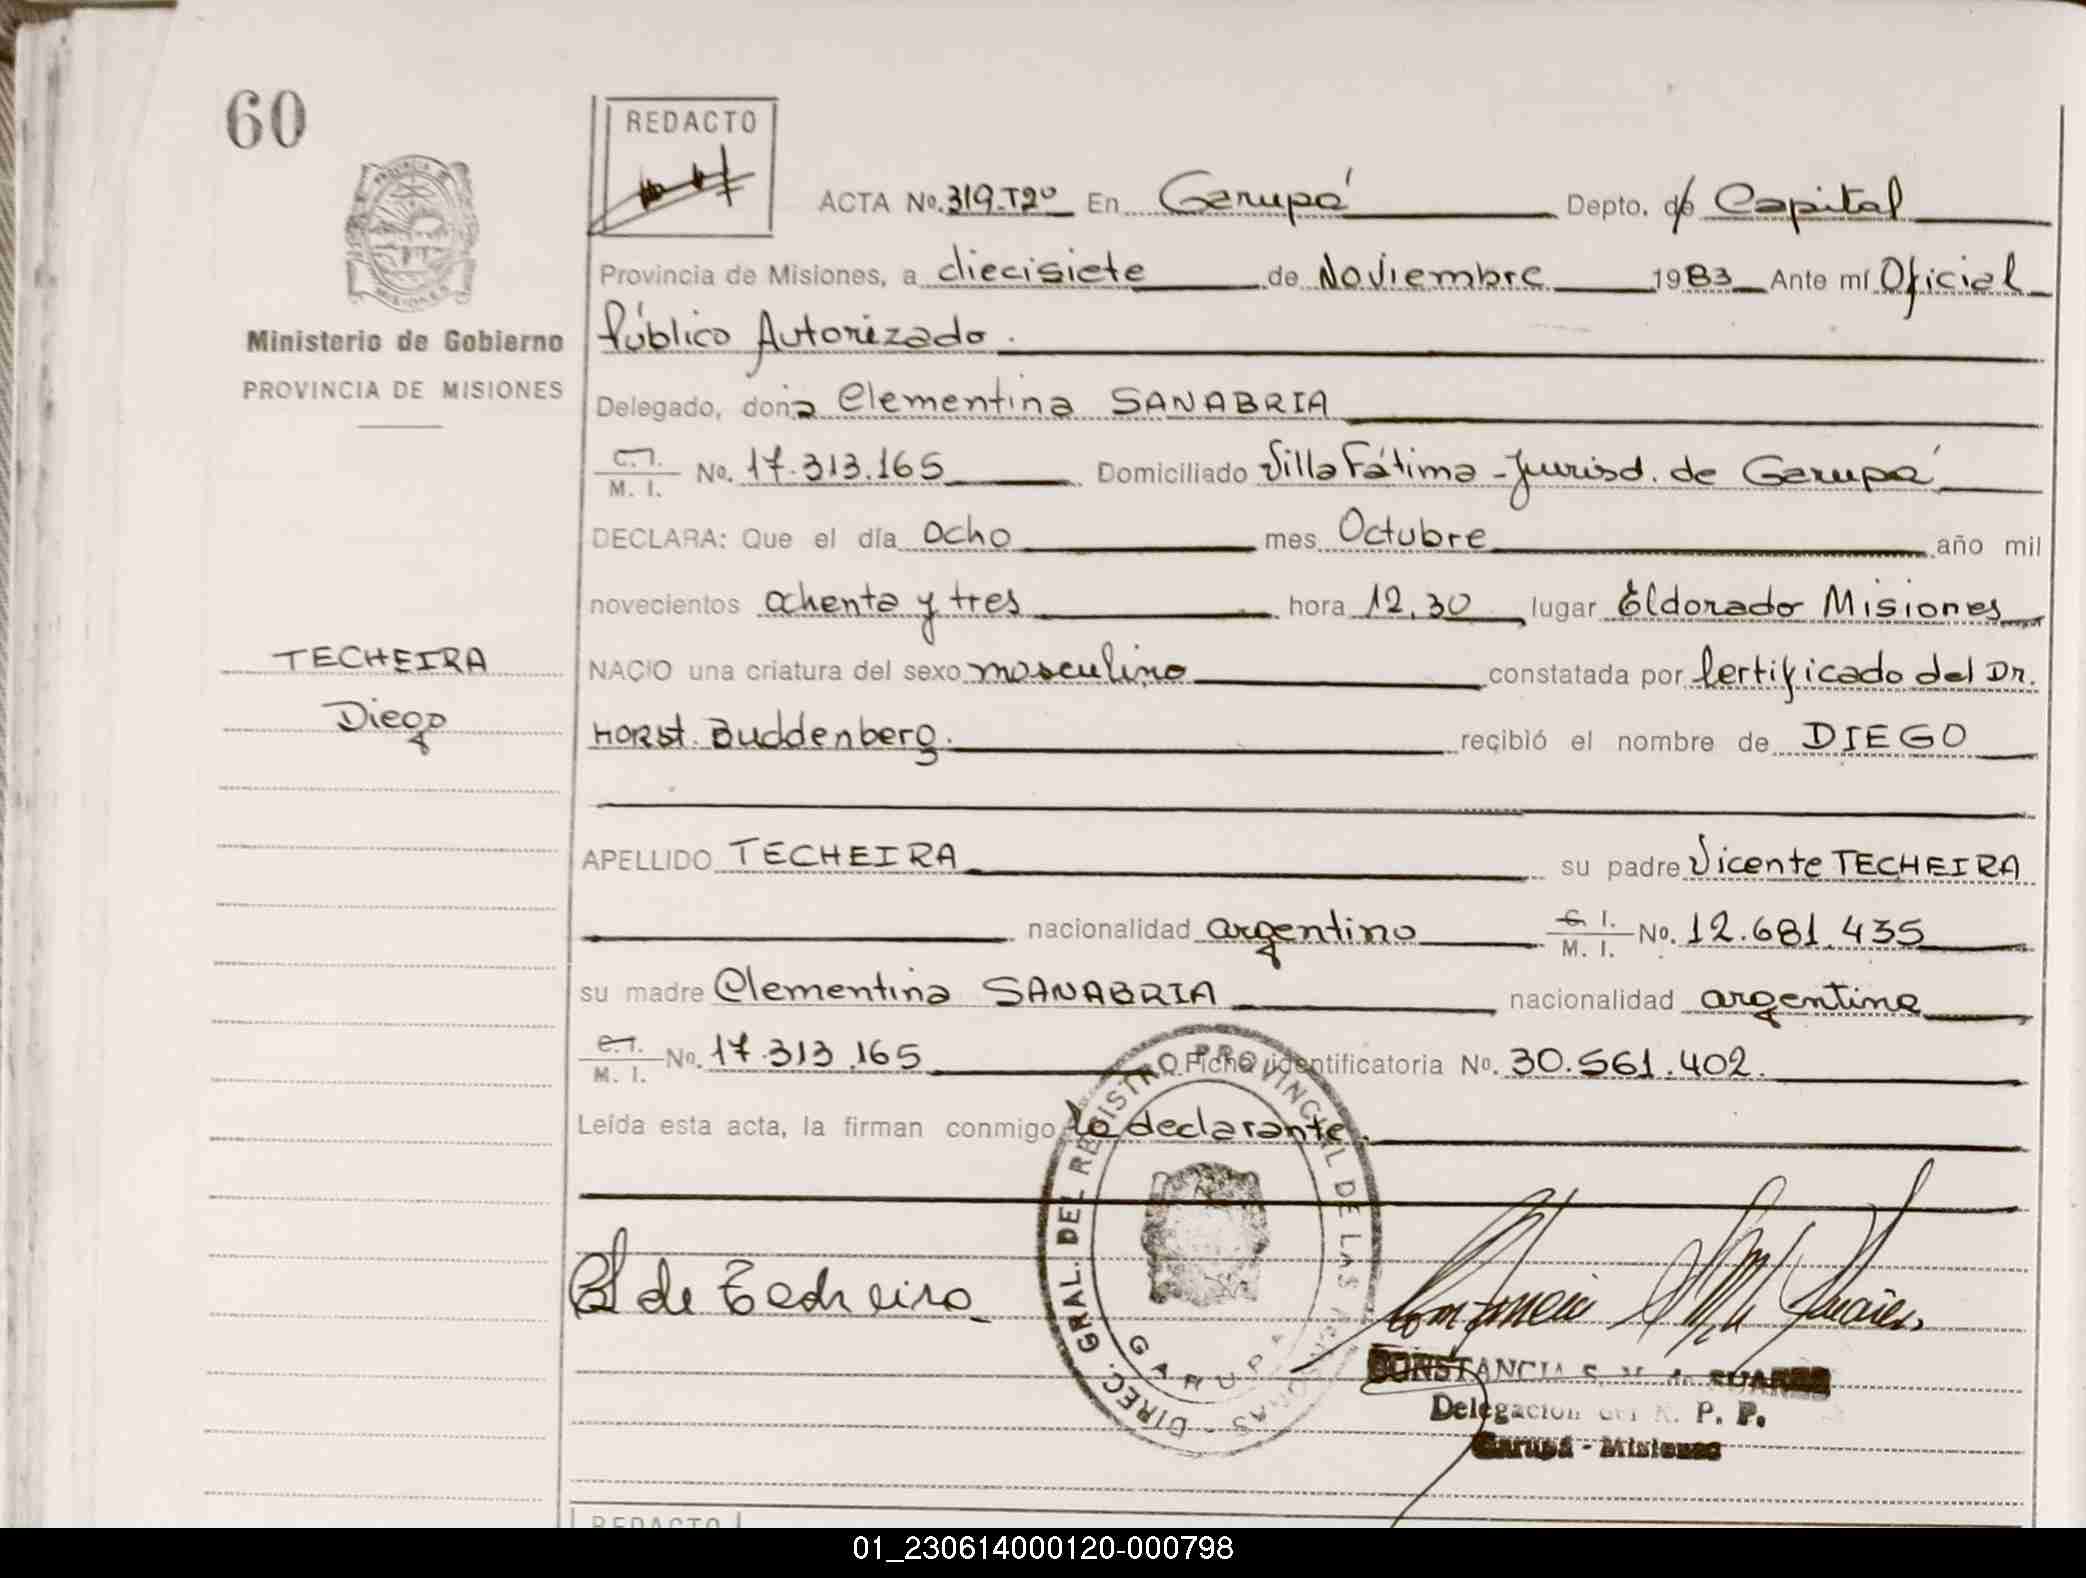 60
REDACTO
PROVINCIA DE
MISIONES
Ministerio de Gobierno
PROVINCIA DE MISIONES
TECHEIRA
Diego
ACTA No. 319-T2º En Garupá Depto. de Capital
Provincia de Misiones, a diecisiete de Noviembre 1983 Ante mí Oficial
Público Autorizado.
Delegado, doña Clementina SANABRIA
C. I.
M. I. No. 17.313.165 Domiciliado Villa Fátima - Jurisd. de Garupá
DECLARA: Que el día ocho mes Octubre año mil
novecientos ochenta y tres hora 12,30 lugar Eldorado Misiones
NACIO una criatura del sexo masculino constatada por Certificado del Dr.
Horst. Buddenberg. recibió el nombre de DIEGO
APELLIDO TECHEIRA su padre Vicente TECHEIRA
nacionalidad argentino C. I.
M. I. No. 12.681.435
su madre Clementina SANABRIA nacionalidad argentina
C. I.
M. I. No. 17.313.165 Ficha identificatoria No. 30.561.402.
Leída esta acta, la firman conmigo la declarante.
DIREC. GRAL. DEL REGISTRO PROVINCIAL DE LAS PERSONAS
GARUPA
de Techeira
CONSTANCIA S. M. de SUAREZ
Delegación del R. P. P.
Garupá - Misiones
REDACTO
01_230614000120-000798